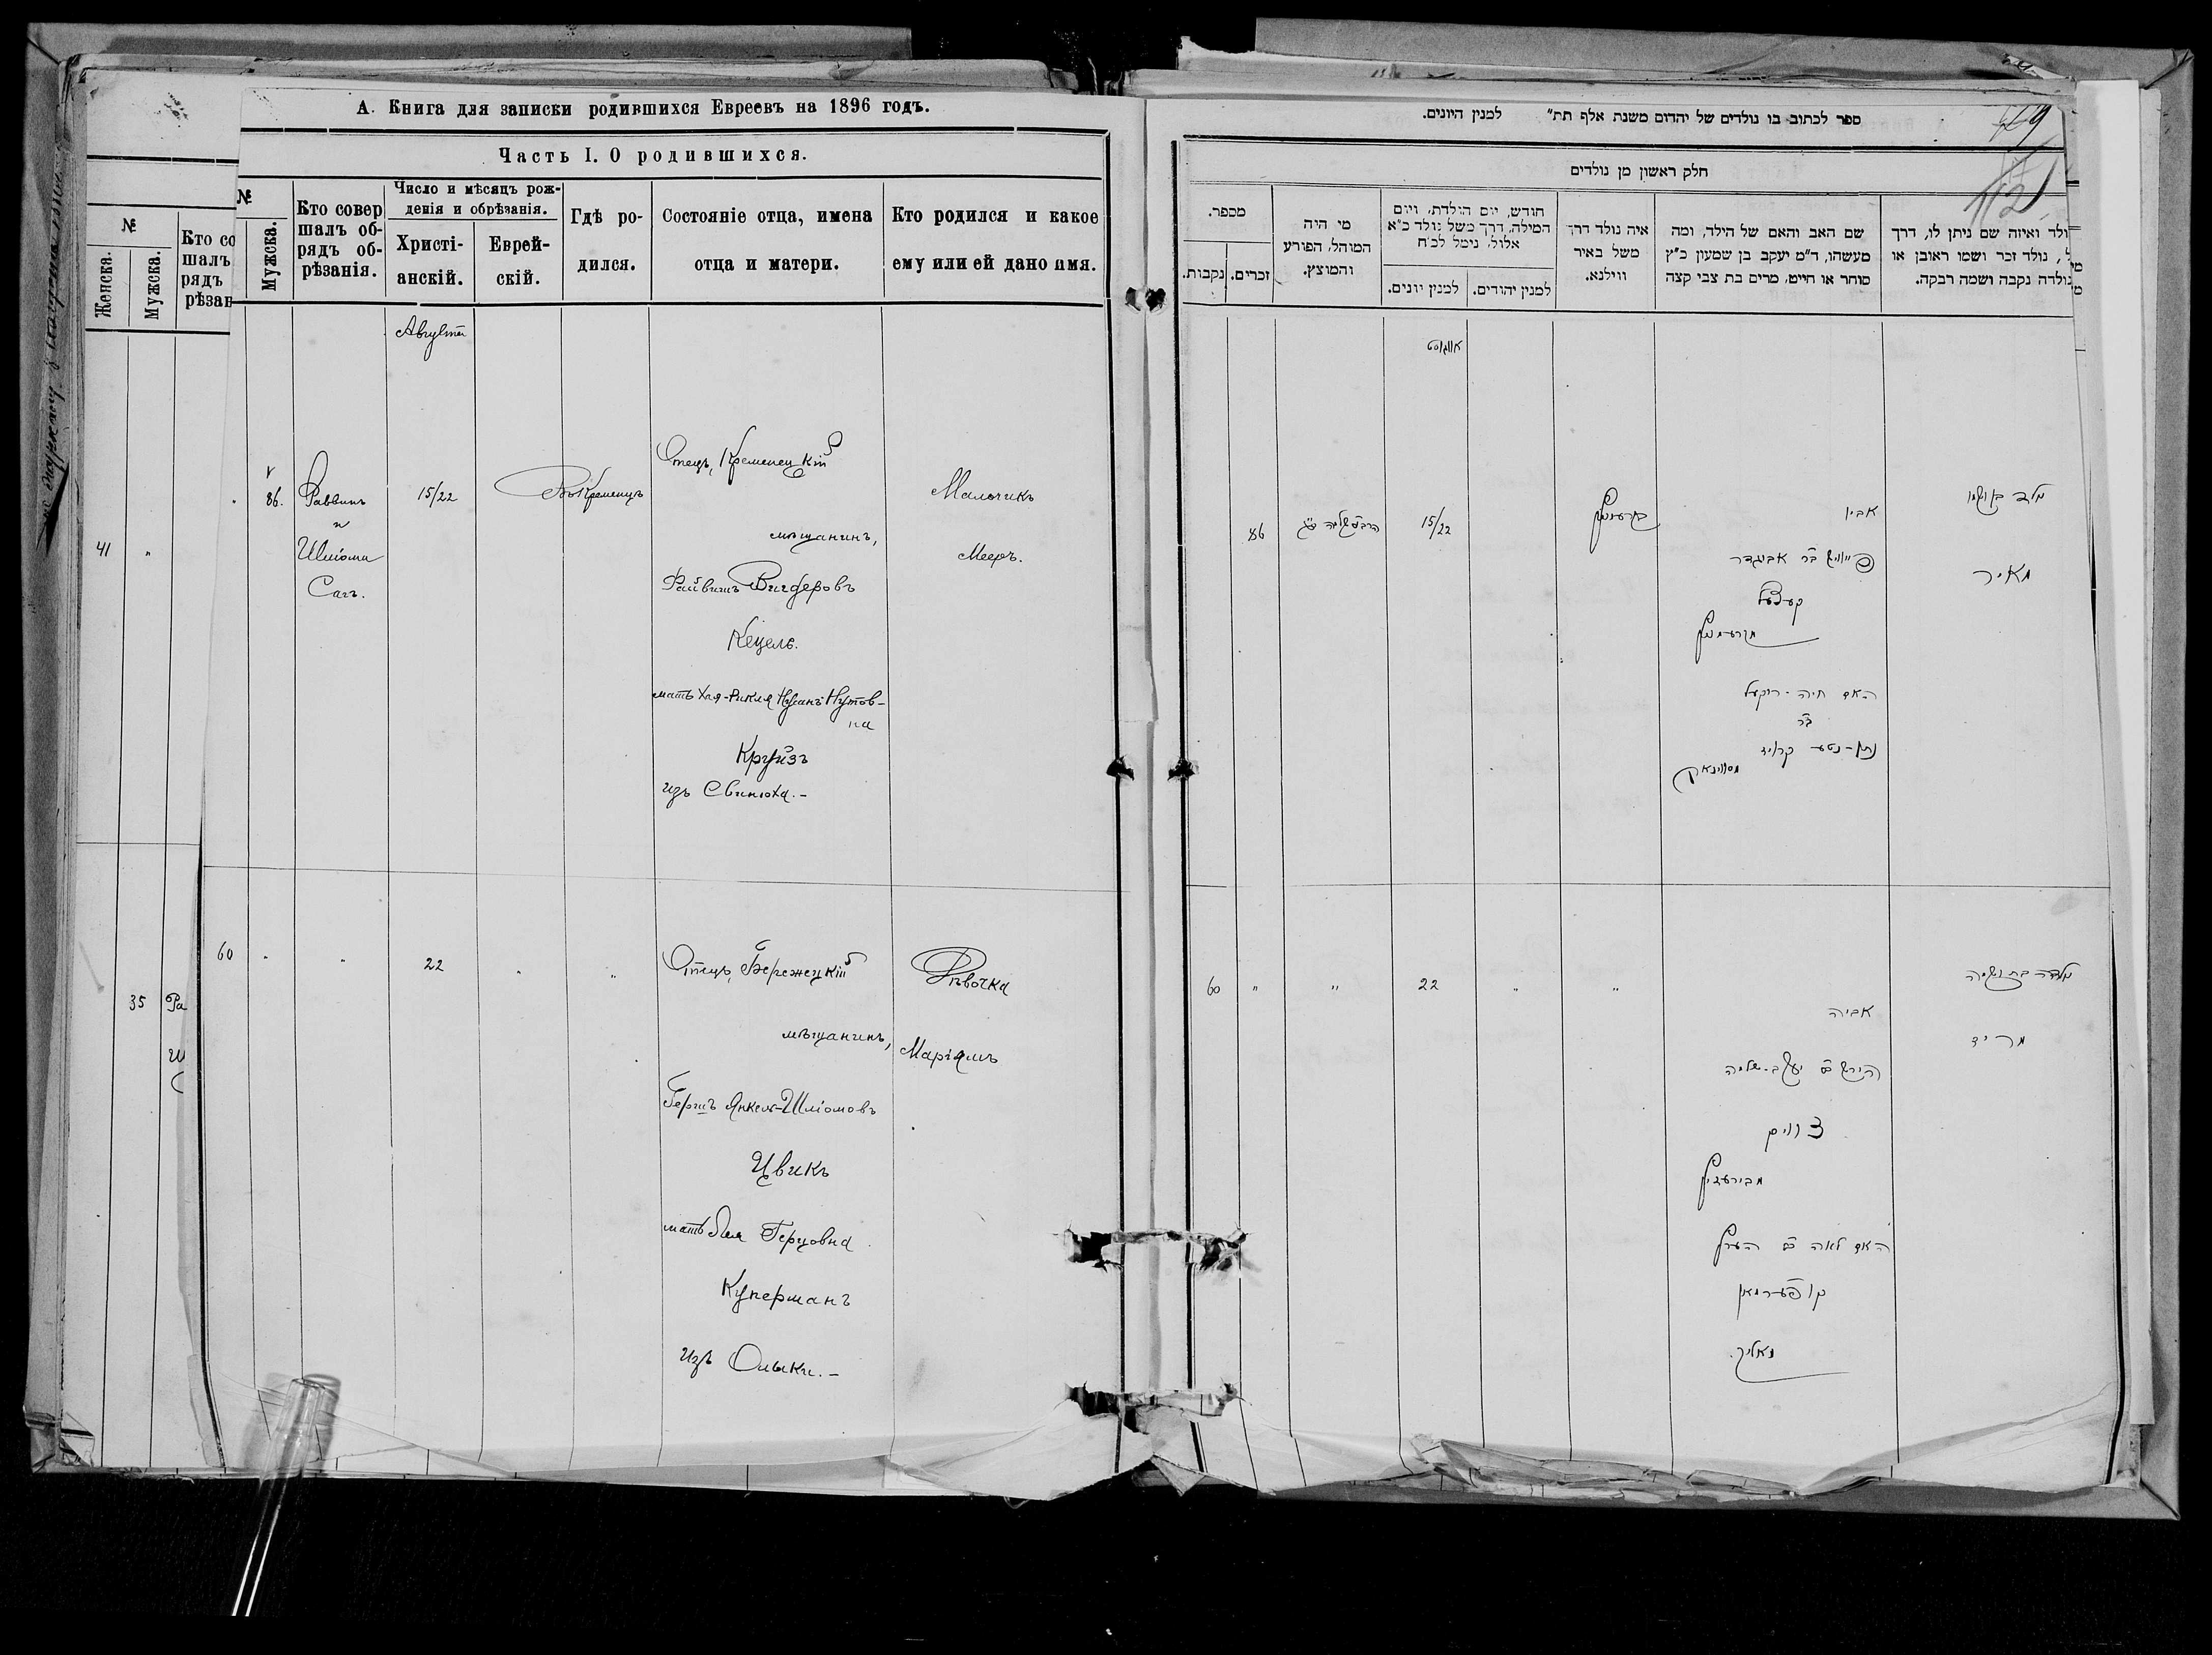 А. Книга для записки родившихся Евреевъ на 1896 годъ.
Часть I. О родившихся.
№
Женска.
Мужска.
Кто со
шалъ
рядъ
рѣзан
№
Мужска.
Кто совер
шалъ об-
рядъ об-
рѣзанія.
Число и мѣсяцъ рож-
денія и обрѣзанія.
Христі-
анскій.
Еврей-
скій.
Гдѣ ро-
дился.
Состояніе отца, имена
отца и матери.
Кто родился и какое
ему или ей дано имя.
Августа
41
"
86.
Раввинъ
и
Шліома
Сагъ.
15/22
Въ Кременцѣ
Отецъ, Кременецкій
мѣщанинъ,
Файвишъ Вигдеровъ
Кецель.
мать Хая-Рикля Нусанъ-Нутов-
на
Круйзъ
изъ Свинюха.-
Мальчикъ
Мееръ.
35
Ра
Ш
С
60
"
"
22
"
"
Отецъ, Бережецкій
мѣщанинъ,
Гершъ Янкель-Шліомовъ
Цвикъ
мать Лея Герцовна
Куперманъ
изъ Олыки.-
Дѣвочка
Маріямъ
ספר לכתוב בו נולדים של יהדום משנת אלף תת״ למנין היונים.
חלק ראשון מן נולדים
מספר.
נקבות.
זכרים.
מי היה
המוהל, הפורע
והמוצץ.
חודש, יום הולדת, ויום
המילה, דרך משל נולד כ״א
אלול, נימל לכ״ח
למנין יונים.
למנין יהודים.
איה נולד דרך
משל באיר
ווילנא.
שם האב והאם של הילד, ומה
מעשהו, ד״מ יעקב בן שמעון כ״ץ
סוחר או חייט, מרים בת צבי קצה
ולד ואיזה שם ניתן לו, דרך
ל, נולד זכר ושמו ראובן או
נולדה נקבה ושמה רבקה.
אווגוסט
86
15/22
אביו
פייוויש ב״ר אביגדר
קעצעל
מקרעמניץ
האם חיה-ריקעל
ב״ר
נתן-נטע קרויז
נולד בן ושמו
מאיר
60
"
"
22
"
"
אביה
הירש ב״ר יעקב-שלמה
צוויק
האם לאה ב״ר הערץ
קופערמאן
מאליק.
נולדה בת ושמה
מרים